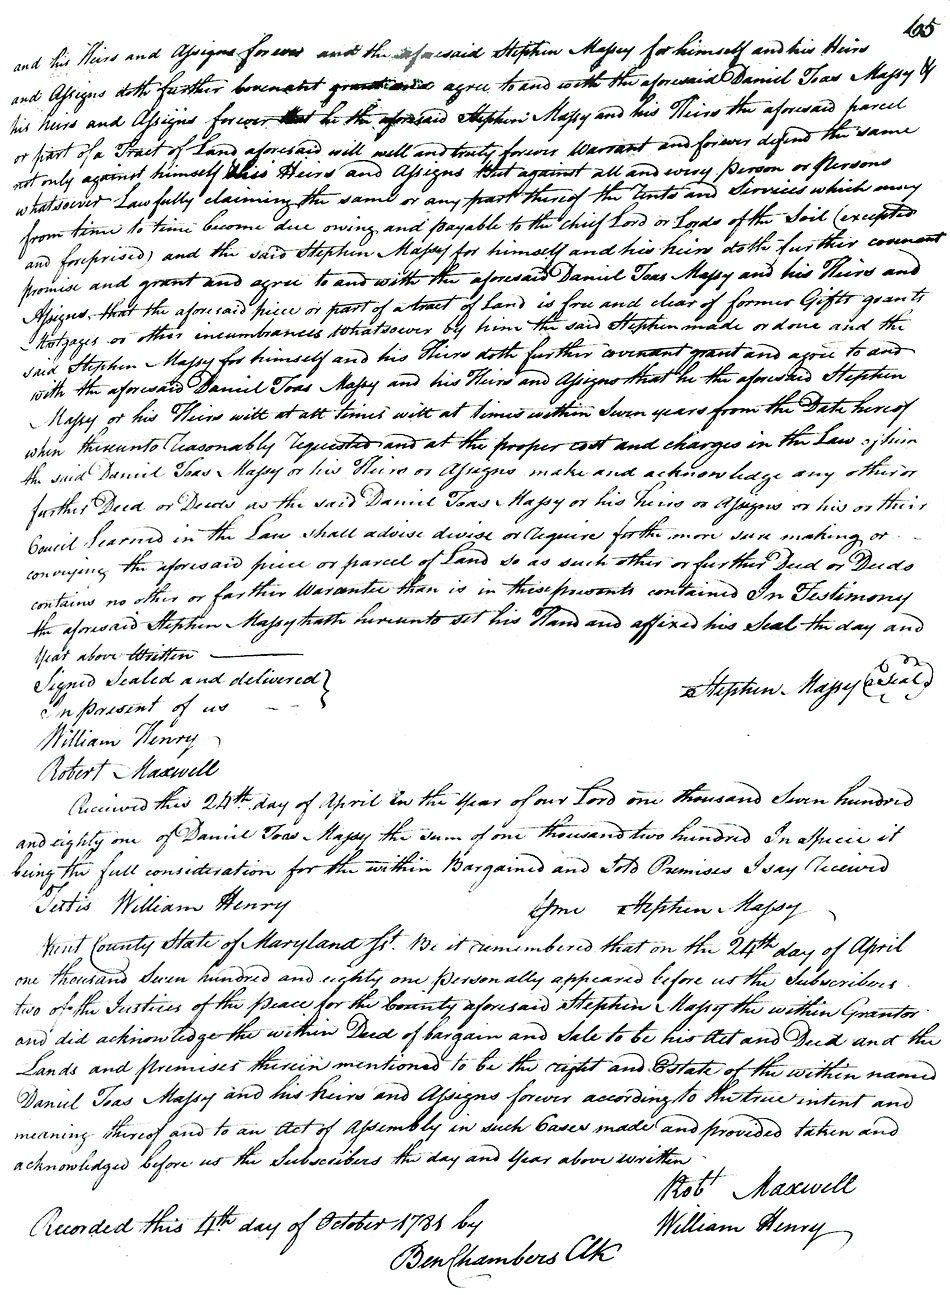 65
and his Heirs and Assigns forever and the aforesaid Stephen Massy for himself and his Heirs
and Assigns doth further Covenant grant and agree to and with the aforesaid Daniel Toas Massy &
his heirs and Assigns forever that he the aforesaid Stephen Massy and his Heirs the aforesaid parcel
or part of a Tract of Land aforesaid will well and truly forever Warrant and forever defend the same
not only against himself his Heirs and Assigns But against all and every Person or Persons
whatsoever Lawfully claiming the same or any part thereof the Rents and Services which may
from time to time become due owing and payable to the chief Lord or Lords of the Soil (excepted
and foreprised) and the said Stephen Massy for himself and his heirs doth further covenant
promise and grant and agree to and with the aforesaid Daniel Toas Massy and his Heirs and
Assigns that the aforesaid piece or part of a tract of Land is free and clear of former Gifts grants
Mortgages or other incumbrances whatsoever by him the said Stephen made or done and the
said Stephen Massy for himself and his Heirs doth further covenant grant and agree to and
with the aforesaid Daniel Toas Massy and his Heirs and Assigns that he the aforesaid Stephen
Massy or his Heirs will at all times will at times within Seven years from the Date hereof
when thereunto Reasonably Requested and at the proper cost and charges in the Law of him
the said Daniel Toas Massy or his Heirs or Assigns make and acknowledge any other or
further Deed or Deeds as the said Daniel Toas Massy or his heirs or Assigns or his or their
Councel Learned in the Law shall advise divise or require for the more sure making or
conveying the aforesaid piece or parcel of Land so as such other or further Deed or Deeds
contains no other or farther Warantee than is in these presents contained In Testimony
the aforesaid Stephen Massy hath hereunto set his Hand and affixed his Seal the day and
Year above Written
Signed Sealed and delivered } Stephen Massy (Seal)
In present of us
William Henry
Robert Maxwell
Received this 24th day of April in the Year of our Lord one thousand Seven hundred
and eighty one of Daniel Toas Massy the sum of one thousand two hundred In Specie it
being the full consideration for the within Bargained and Sold Premises I say received
Testis William Henry me Stephen Massy
Kent County State of Maryland Sst. Be it remembered that on the 24th day of April
one thousand Seven hundred and eighty one personally appeared before us the Subscribers
two of the Justices of the peace for the County aforesaid Stephen Massy the within Grantor
and did acknowledge the within Deed of bargain and Sale to be his Act and Deed and the
Lands and premises therein mentioned to be the right and Estate of the within named
Daniel Toas Massy and his heirs and Assigns forever according to the true intent and
meaning thereof and to an Act of Assembly in such Cases made and provided taken and
acknowledged before us the Subscribers the day and Year above written
Robt Maxwell
Recorded this 4th day of October 1781 by William Henry
Ben Chambers Clk